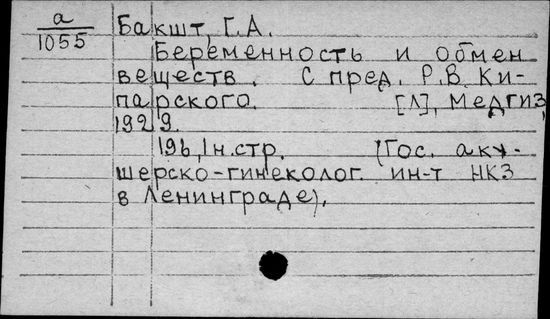 а
1055
Бакшт, Г.А.
Беременность и обмен
веществ. С пред. Р.В. Ки-
парского. [Л], Медгиз,
1929.
196, 1 н. стр. (Гос. аку-
шерско-гинеколог. ин-т НКЗ
в Ленинграде).